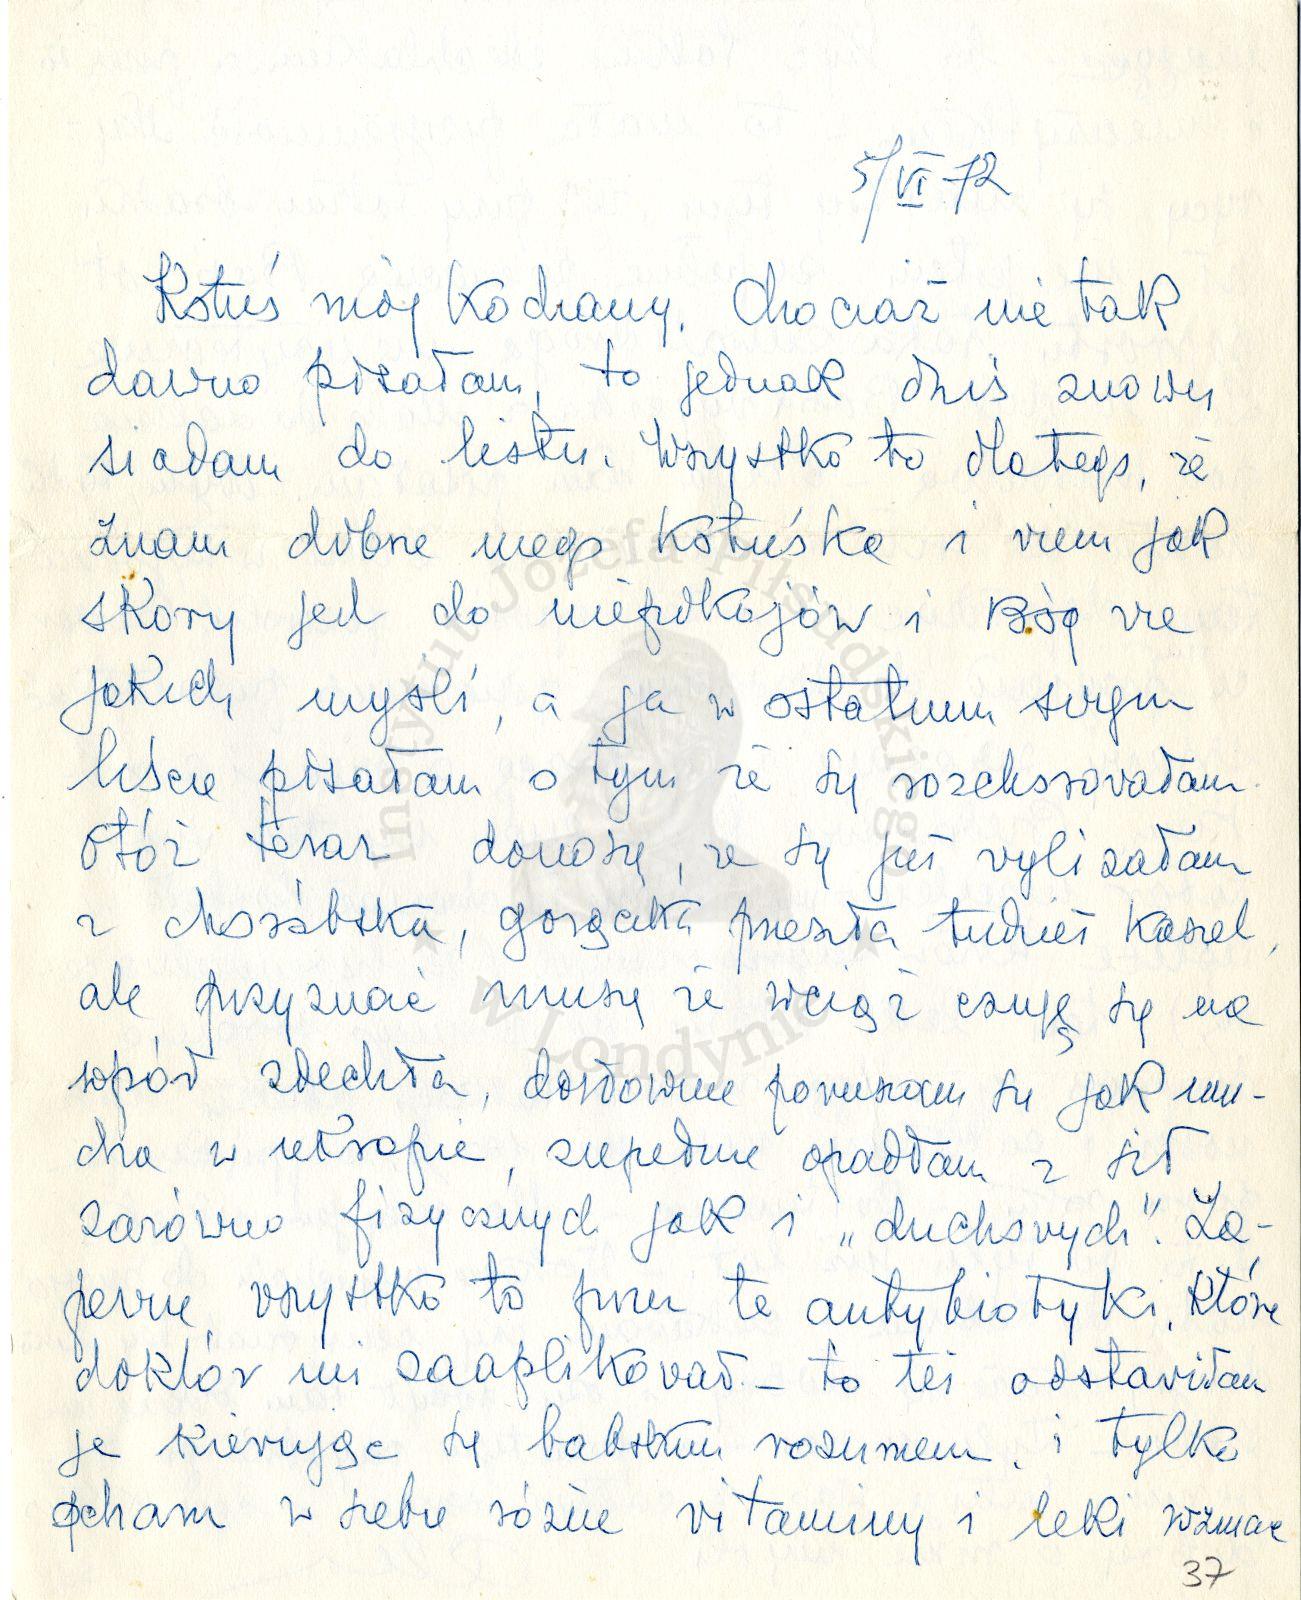 5/VI-72
Kotuś mój kochany. Chociaż nie tak
dawno pisałam, to jednak dziś znowu
siadam do listu. Wszystko to dlatego, że
znam dobrze mego Kotuśka i wiem jak
skory jest do niepokojów i Bóg wie
jakich myśli, a ja w ostatnim swym
liście pisałam o tym że się rozchorowałam.
Otóż teraz donoszę, że się już wylizałam
z choróbska, gorączka przeszła tudzież kaszel,
ale przyznać muszę że wciąż czuję się na
wpół zdechła, dosłownie poruszam się jak mu-
cha w ukropie, zupełnie opadłam z sił
zarówno fizycznych jak i „duchowych". Za-
pewne wszystko to przez te antybiotyki, które
doktór mi zaaplikował - to też odstawiłam
je kierując się babskim rozumem i tylko
pcham w siebie różne vitaminy i leki wzmac
37
Instytut Józefa Piłsudskiego
w Londynie